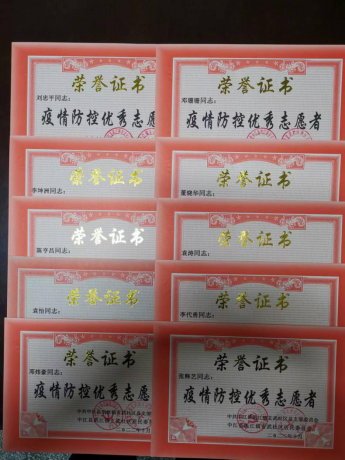 荣誉证书
刘忠平同志：
疫情防控优秀志愿
荣誉证书
邓珊珊同志：
疫情防控优秀志愿者
荣誉证书
李坤洲同志：
荣誉证书
董晓华同志：
荣誉证书
陈亨昌同志：
荣誉证书
袁涛同志：
荣誉证书
袁怡同志：
荣誉证书
李代勇同志：
荣誉证书
邓炜豪同志：
疫情防控优秀志愿
荣誉证书
张辉艺同志：
疫情防控优秀志愿者